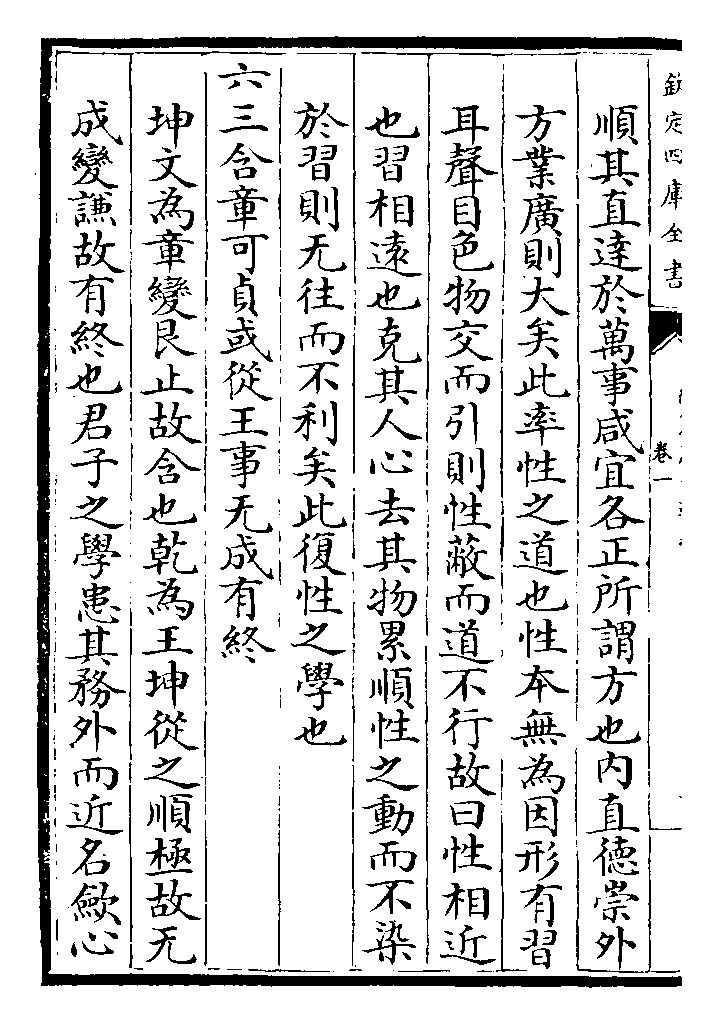 欽定四庫全書
卷一
順其直達於萬事咸宜各正所謂方也内直德崇外
方業廣則大矣此率性之道也性本無為因形有習
耳聲目色物交而引則性蔽而道不行故曰性相近
也習相遠也克其人心去其物累順性之動而不染
於習則无往而不利矣此復性之學也
六三含章可貞或從王事无成有終
坤文為章變艮止故含也乾為王坤從之順極故无
成變謙故有終也君子之學患其務外而近名歛心